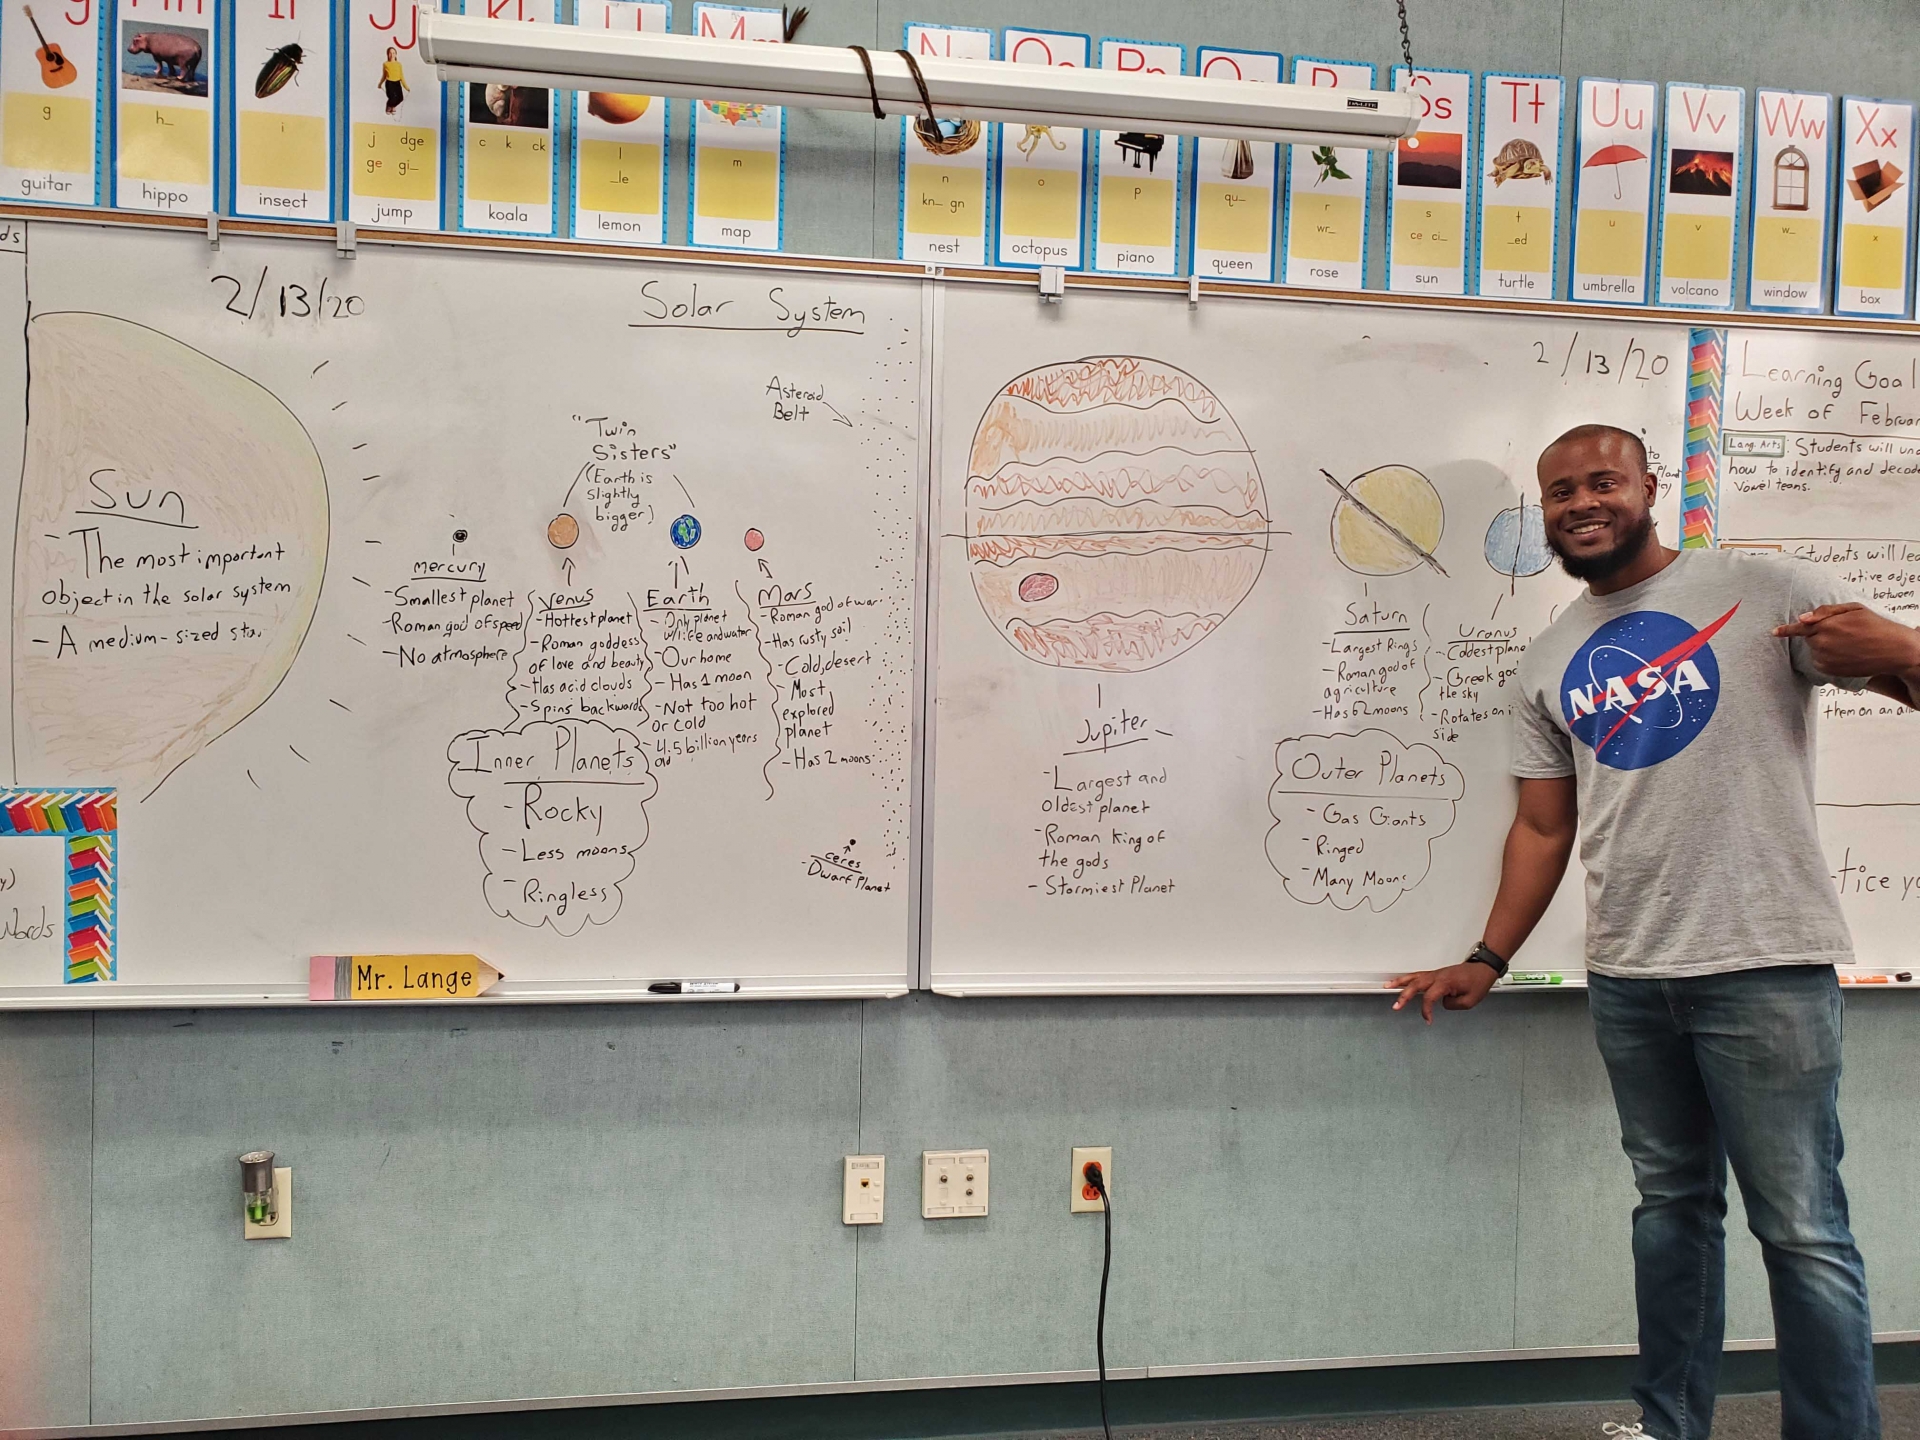 g
guitar
h_
hippo
i
insect
Jj
j dge
ge gi_
jump
c k ck
koala
l
_le
lemon
m
map
n
kn_ gn
nest
o
octopus
p
piano
qu_
queen
r
wr_
rose
Ss
s
ce ci_
sun
Tt
t
_ed
turtle
Uu
u
umbrella
Vv
v
volcano
Ww
w_
window
Xx
x
box
2/13/20
Solar System
Sun
- The most important
object in the solar system
- A medium-sized star
Asteroid
Belt
"Twin
Sisters"
(Earth is
slightly
bigger)
mercury
- Smallest planet
- Roman god of speed
- No atmosphere
Venus
- Hottest planet
- Roman goddess
of love and beauty
- Has acid clouds
- Spins backwards
Earth
- Only planet
w/life and water
- Our home
- Has 1 moon
- Not too hot
or cold
- 4.5 billion years
old
Mars
- Roman god of war
- Has rusty soil
- Cold, desert
- Most
explored
planet
- Has 2 moons
Inner Planets
- Rocky
- Less moons
- Ringless
ceres
- Dwarf Planet
Mr. Lange
Words
2/13/20
Jupiter
- Largest and
oldest planet
- Roman king of
the gods
- Stormiest Planet
Saturn
- Largest Rings
- Roman god of
agriculture
- Has 62 moons
Uranus
- Coldest plane
- Greek god
the sky
- Rotates on i
side
Outer Planets
- Gas Giants
- Ringed
- Many Moons
NASA
Learning Goal
Week of Februar
Lang. Arts: Students will und
how to identify and decode
vowel teams.
Students will lea
between
them on an
tice yo